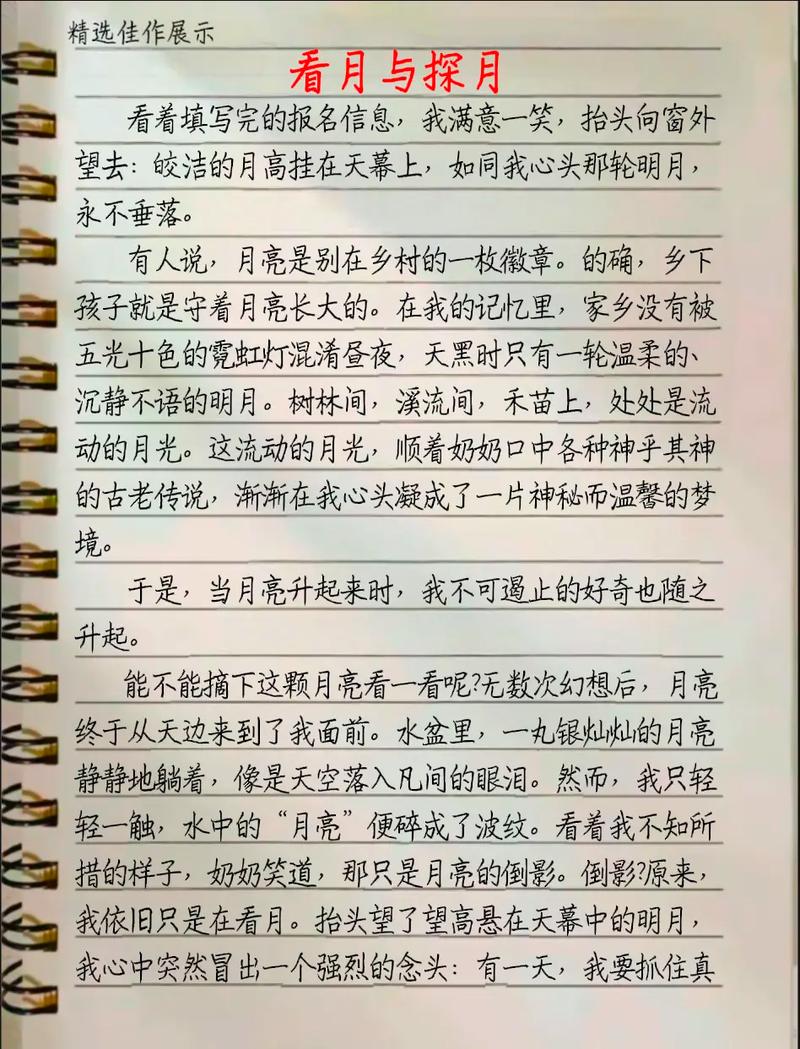 精选佳作展示
看月与探月
看着填写完的报名信息，我满意一笑，抬头向窗外
望去：皎洁的月高挂在天幕上，如同我心头那轮明月，
永不垂落。
有人说，月亮是别在乡村的一枚徽章。的确，乡下
孩子就是守着月亮长大的。在我的记忆里，家乡没有被
五光十色的霓虹灯混淆昼夜，天黑时只有一轮温柔的、
沉静不语的明月。树林间，溪流间，禾苗上，处处是流
动的月光。这流动的月光，顺着奶奶口中各种神乎其神
的古老传说，渐渐在我心头凝成了一片神秘而温馨的梦
境。
于是，当月亮升起来时，我不可遏止的好奇也随之
升起。
能不能摘下这颗月亮看一看呢?无数次幻想后，月亮
终于从天边来到了我面前。水盆里，一丸银灿灿的月亮
静静地躺着，像是天空落入凡间的眼泪。然而，我只轻
轻一触，水中的“月亮”便碎成了波纹。看着我不知所
措的样子，奶奶笑道，那只是月亮的倒影。倒影?原来，
我依旧只是在看月。抬头望了望高悬在天幕中的明月，
我心中突然冒出一个强烈的念头：有一天，我要抓住真